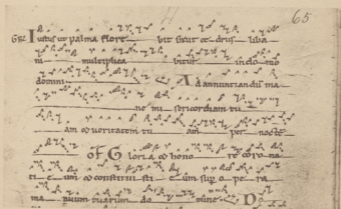 65
GR Iustus ut palma flore bit sicut cedrus liba
ni multiplica bitur in domo
domini Ad annunciandũ ma
ne mi sericordiam tu
am & veritatem tu am per noctẽ
Of Gloria & hono re corona
sti eum & constitui sti eum sup opera
manuum tuarum do mine